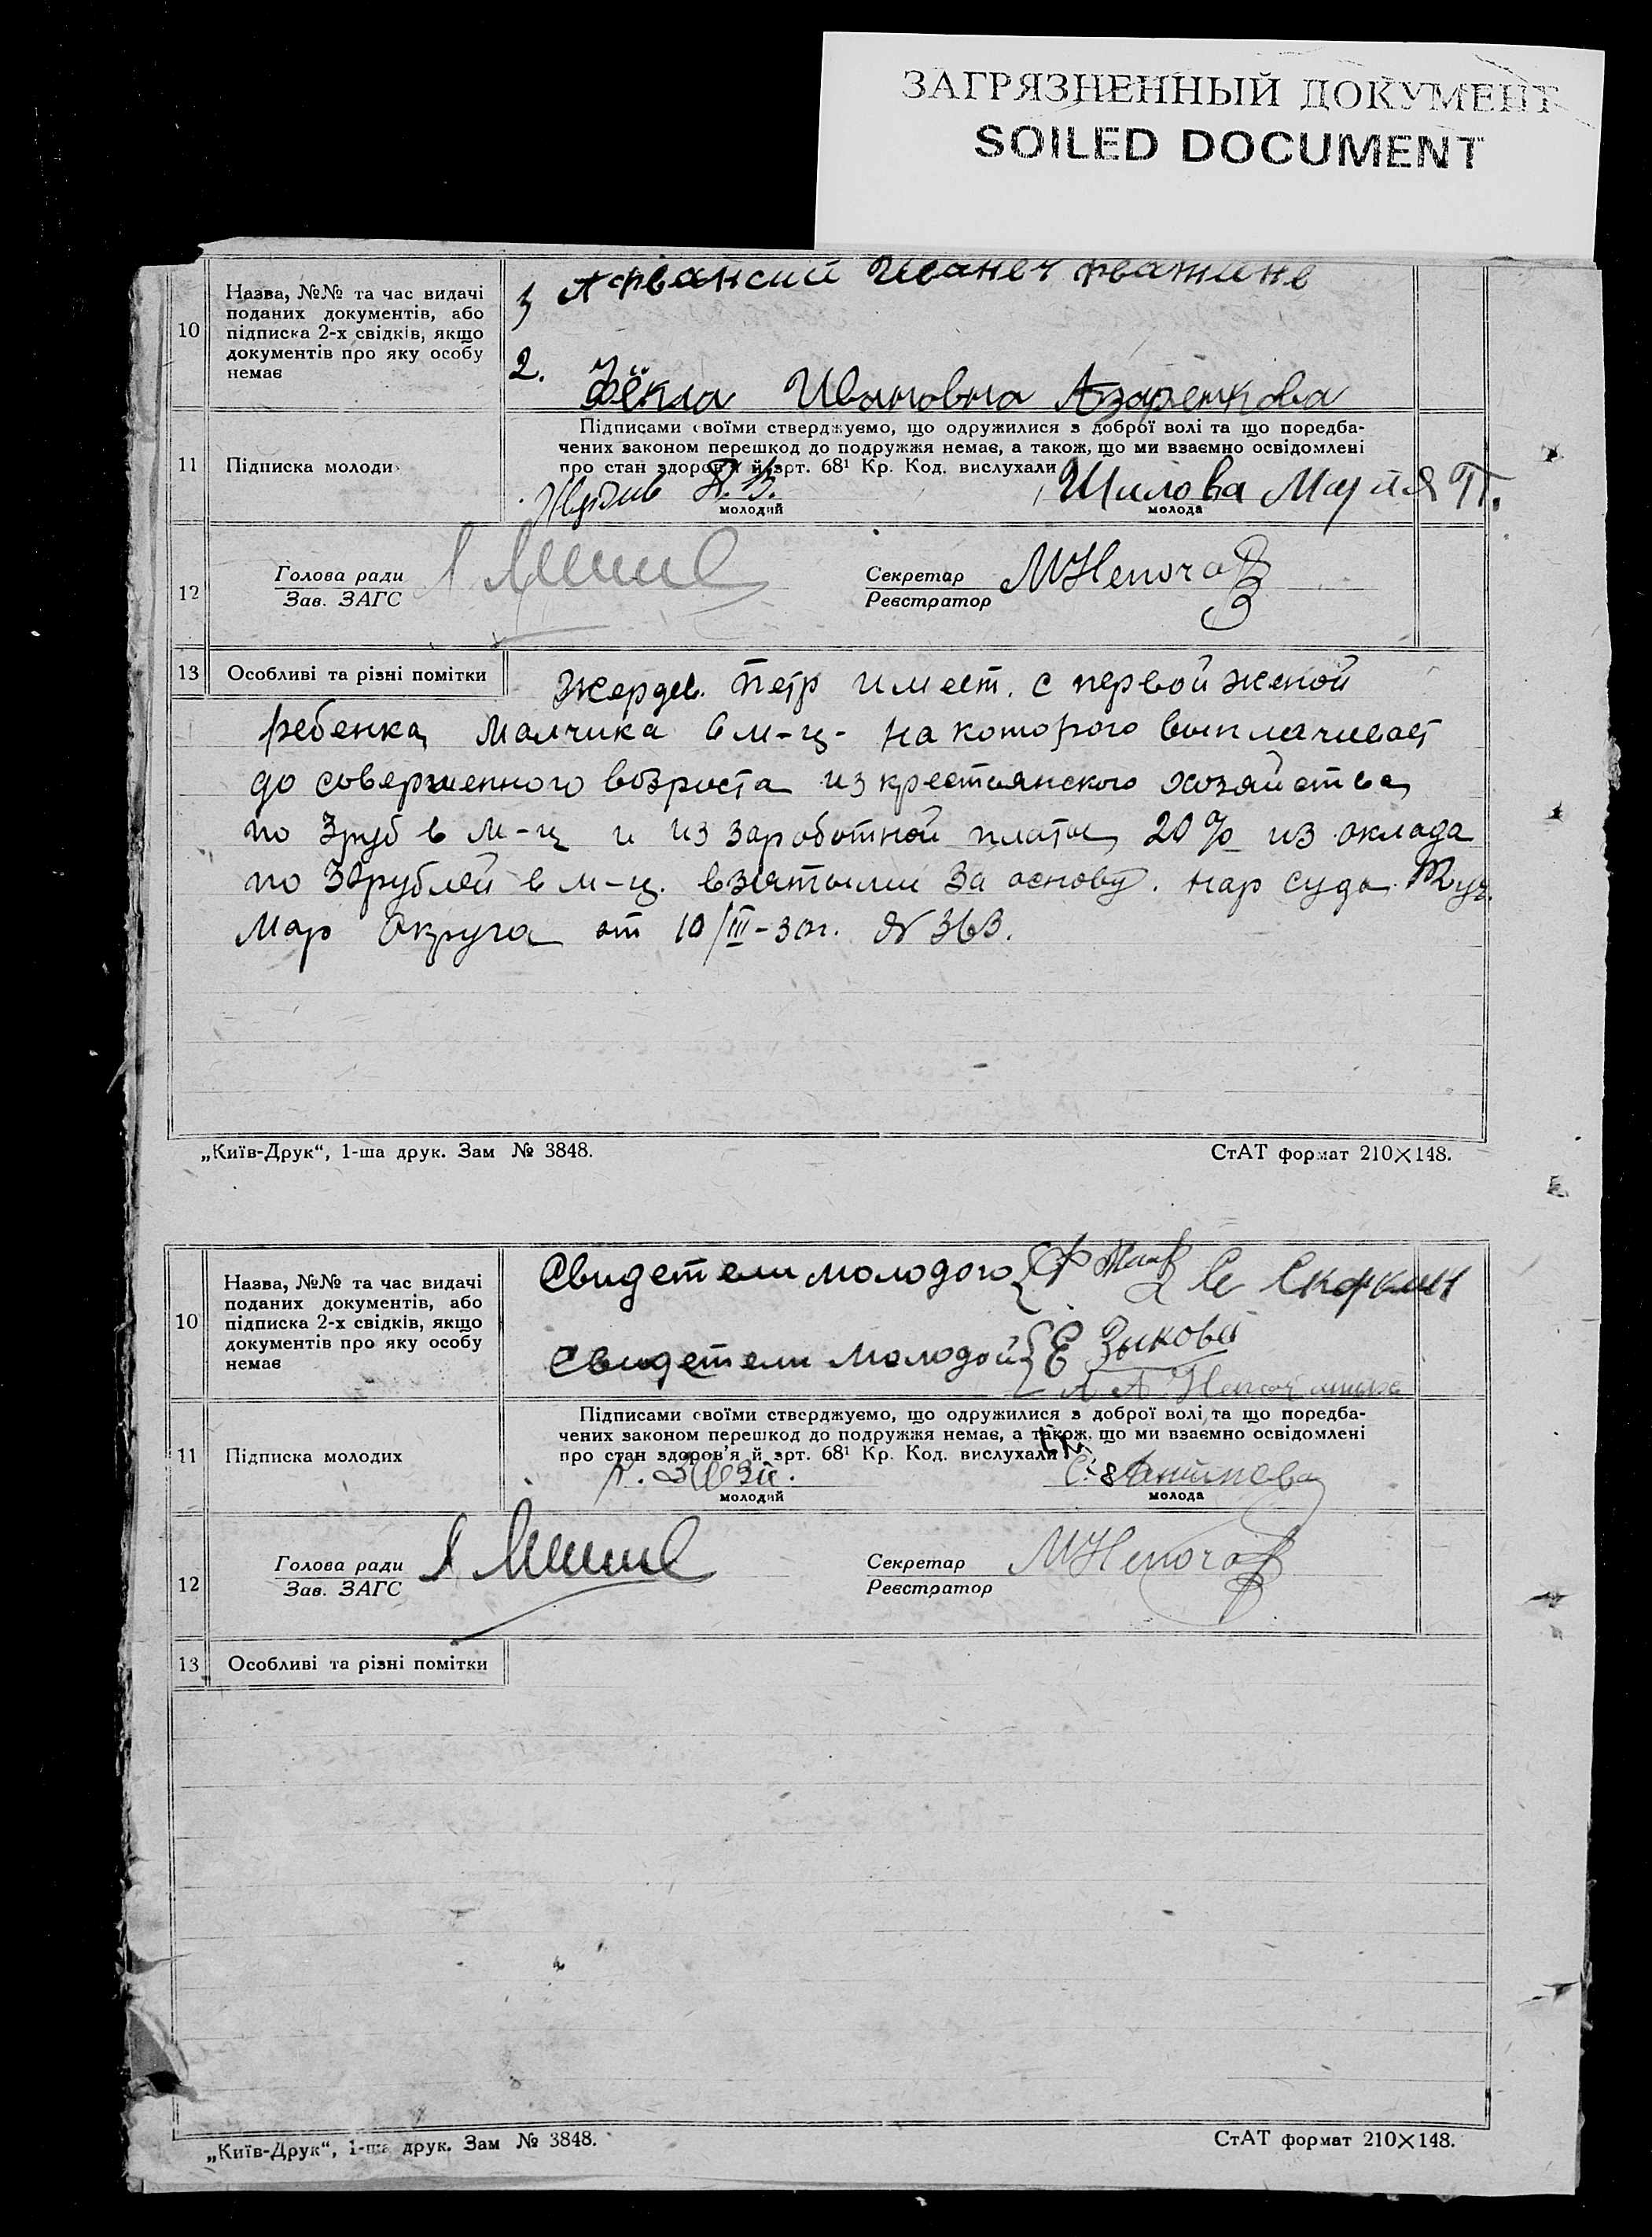 ЗАГРЯЗНЕННЫЙ ДОКУМЕНТ
SOILED DOCUMENT
10
Назва, №№ та час видачі
поданих документів, або
підписка 2-х свідків, якщо
документів про яку особу
немає
2. Фёкла Ивановна Азаренкова
11
Підписка молоди
Підписами своїми стверджуємо, що одружилися з доброї волі та що поредба-
чених законом перешкод до подружжя немає, а також, що ми взаємно освідомлені
про стан здоров'я й зрт. 68¹ Кр. Код. вислухали
Шилова П.
молодий
молода
12
Голова ради
Зав. ЗАГС
Секретар
Реєстратор
13
Особливі та різні помітки
Жердев. Петр имеет. с первой женой
ребенка малчика 6 м-ц- на которого выплачивает
до совершенного возроста из крестьянского хозяйства
по 3 руб в м-ц и из заработной платы 20% из оклада
по 30 рублей в м-ц. взятыми за основу. нар суда
Мар Округа от 10/III-30г. № 363.
„Київ-Друк“, 1-ша друк. Зам № 3848.
СтАТ формат 210×148.
10
Назва, №№ та час видачі
поданих документів, або
підписка 2-х свідків, якщо
документів про яку особу
немає
Свидетели молодого
Свидетели молодой Е Зыкова
11
Підписка молодих
Підписами своїми стверджуємо, що одружилися з доброї волі та що поредба-
чених законом перешкод до подружжя немає, а також, що ми взаємно освідомлені
про стан здоров'я й зрт. 68¹ Кр. Код. вислухали
Антипова
молодий
молода
12
Голова ради
Зав. ЗАГС
Секретар
Реєстратор
13
Особливі та різні помітки
„Київ-Друк“, 1-ша друк. Зам № 3848.
СтАТ формат 210×148.